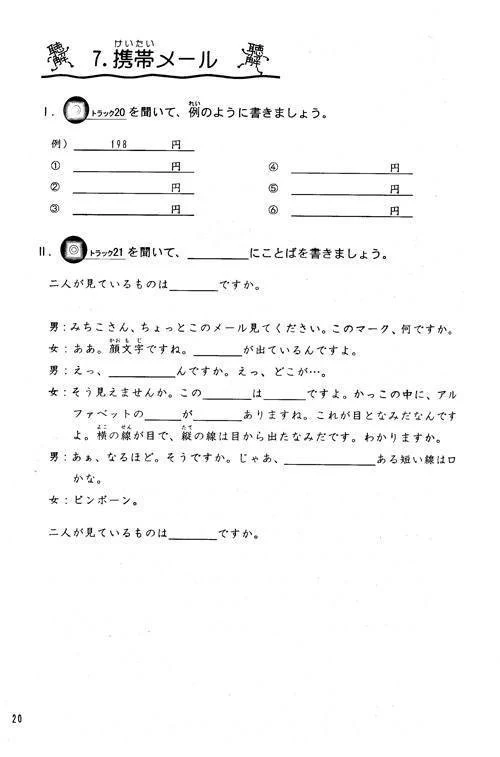 聴解
けいたい
7.携帯メール
聴解
Ⅰ. トラック20を聞いて、例のように書きましょう。
れい
例) 198 円
① 円 ④ 円
② 円 ⑤ 円
③ 円 ⑥ 円
Ⅱ. トラック21を聞いて、________にことばを書きましょう。
二人が見ているものは______ですか。
男:みちこさん、ちょっとこのメール見てください。このマーク、何ですか。
かおもじ
女:ああ。顔文字ですね。______が出ているんですよ。
男:えっ、________んですか。えっ、どこが…。
女:そう見えませんか。この______は______ですよ。かっこの中に、アル
ファベットの____が____ありますね。これが目となみだなんです
よこ せん たて
よ。横の線が目で、縦の線は目から出たなみだです。わかりますか。
男:あぁ、なるほど。そうですか。じゃあ、____________ある短い線は口
かな。
女:ピンポーン。
二人が見ているものは______ですか。
20